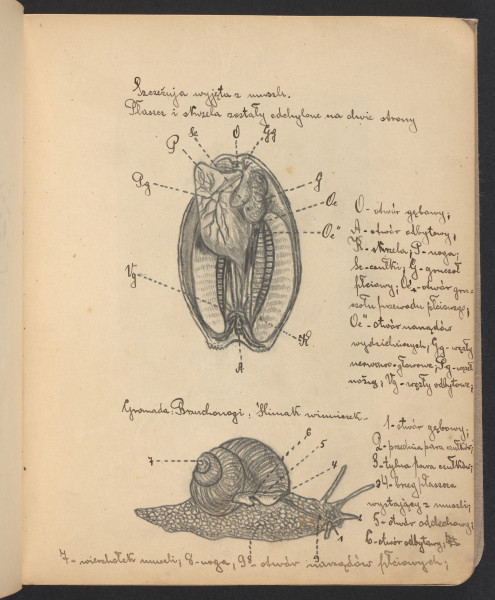 Szczeżuja wyjęta z muszli.
Płaszcz i skrzela zostały odchylone na dwie strony
Sc O Gg
P
Pg G
Oc
Oc"
Vg
K
A
O- otwór gębowy;
A- otwór odbytowy;
K- skrzela; P- noga;
Sc- czułki; G- gruczoł
płciowy; Oc- otwór gru-
czołu przewodu płciowego;
Oc"- otwór narządów
wydzielniczych; Gg- węzły
nerwowe głowowe; Pg- węzeł
nożny; Vg- węzły odbytowe;
Gromada: Brzuchonogi; Ślimak winniczek.
1- otwór gębowy;
2- przednia para czułków;
3- tylna para czułków;
4- brzeg płaszcza
wystający z muszli;
5- otwór oddechowy;
6- otwór odbytowy;
7 6 5 4 3 2 1 8 9
7- wierzchołek muszli; 8- noga, 9- otwór narządów płciowych;